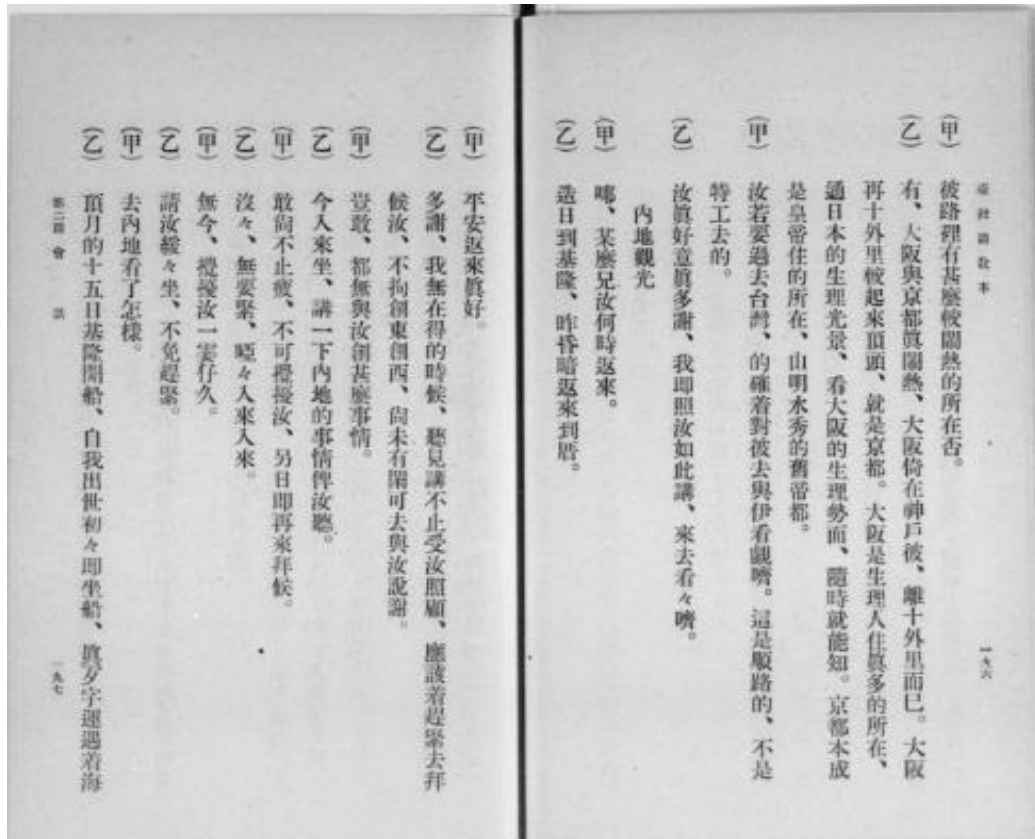 臺灣語教本
一九六
(甲) 彼路裡有甚麼較鬧熱的所在否。
(乙) 有、大阪與京都眞鬧熱、大阪倚在神戸彼、離十外里而已。大阪
再十外里較起來頂頭、就是京都。大阪是生理人住眞多的所在、
通日本的生理光景、看大阪的生理勢面、隨時就能知。京都本成
是皇帝住的所在、山明水秀的舊帝都。
(甲) 汝若要過去台灣、的確着對彼去與伊看覷嚌。這是順路的、不是
特工去的。
(乙) 汝眞好意眞多謝、我即照汝如此講、來去看々嚌。
內地觀光
(甲) 某麼兄汝何時返來。
(乙) 造日到基隆、昨昏暗返來到厝。
(甲) 平安返來眞好。
(乙) 多謝、我無在得的時候、聽見講不止受汝照顧、應該着趕緊去拜
候汝、不拘創東創西、尙未有閑可去與汝說謝。
(甲) 豈敢、都無與汝創甚麼事情。
(乙) 今入來坐、講一下內地的事情俾汝聽。
(甲) 敢尙不止疲、不可攪擾汝、另日即再來拜候。
(乙) 沒々、無要緊、啞々入來入來。
(甲) 無今、攪擾汝一霎仔久。
(乙) 請汝緩々坐、不免趕緊。
(甲) 去內地看了怎樣。
(乙) 頂月的十五日基隆開船、自我出世初々即坐船、眞歹字運遇着海
第二篇 會話
一九七